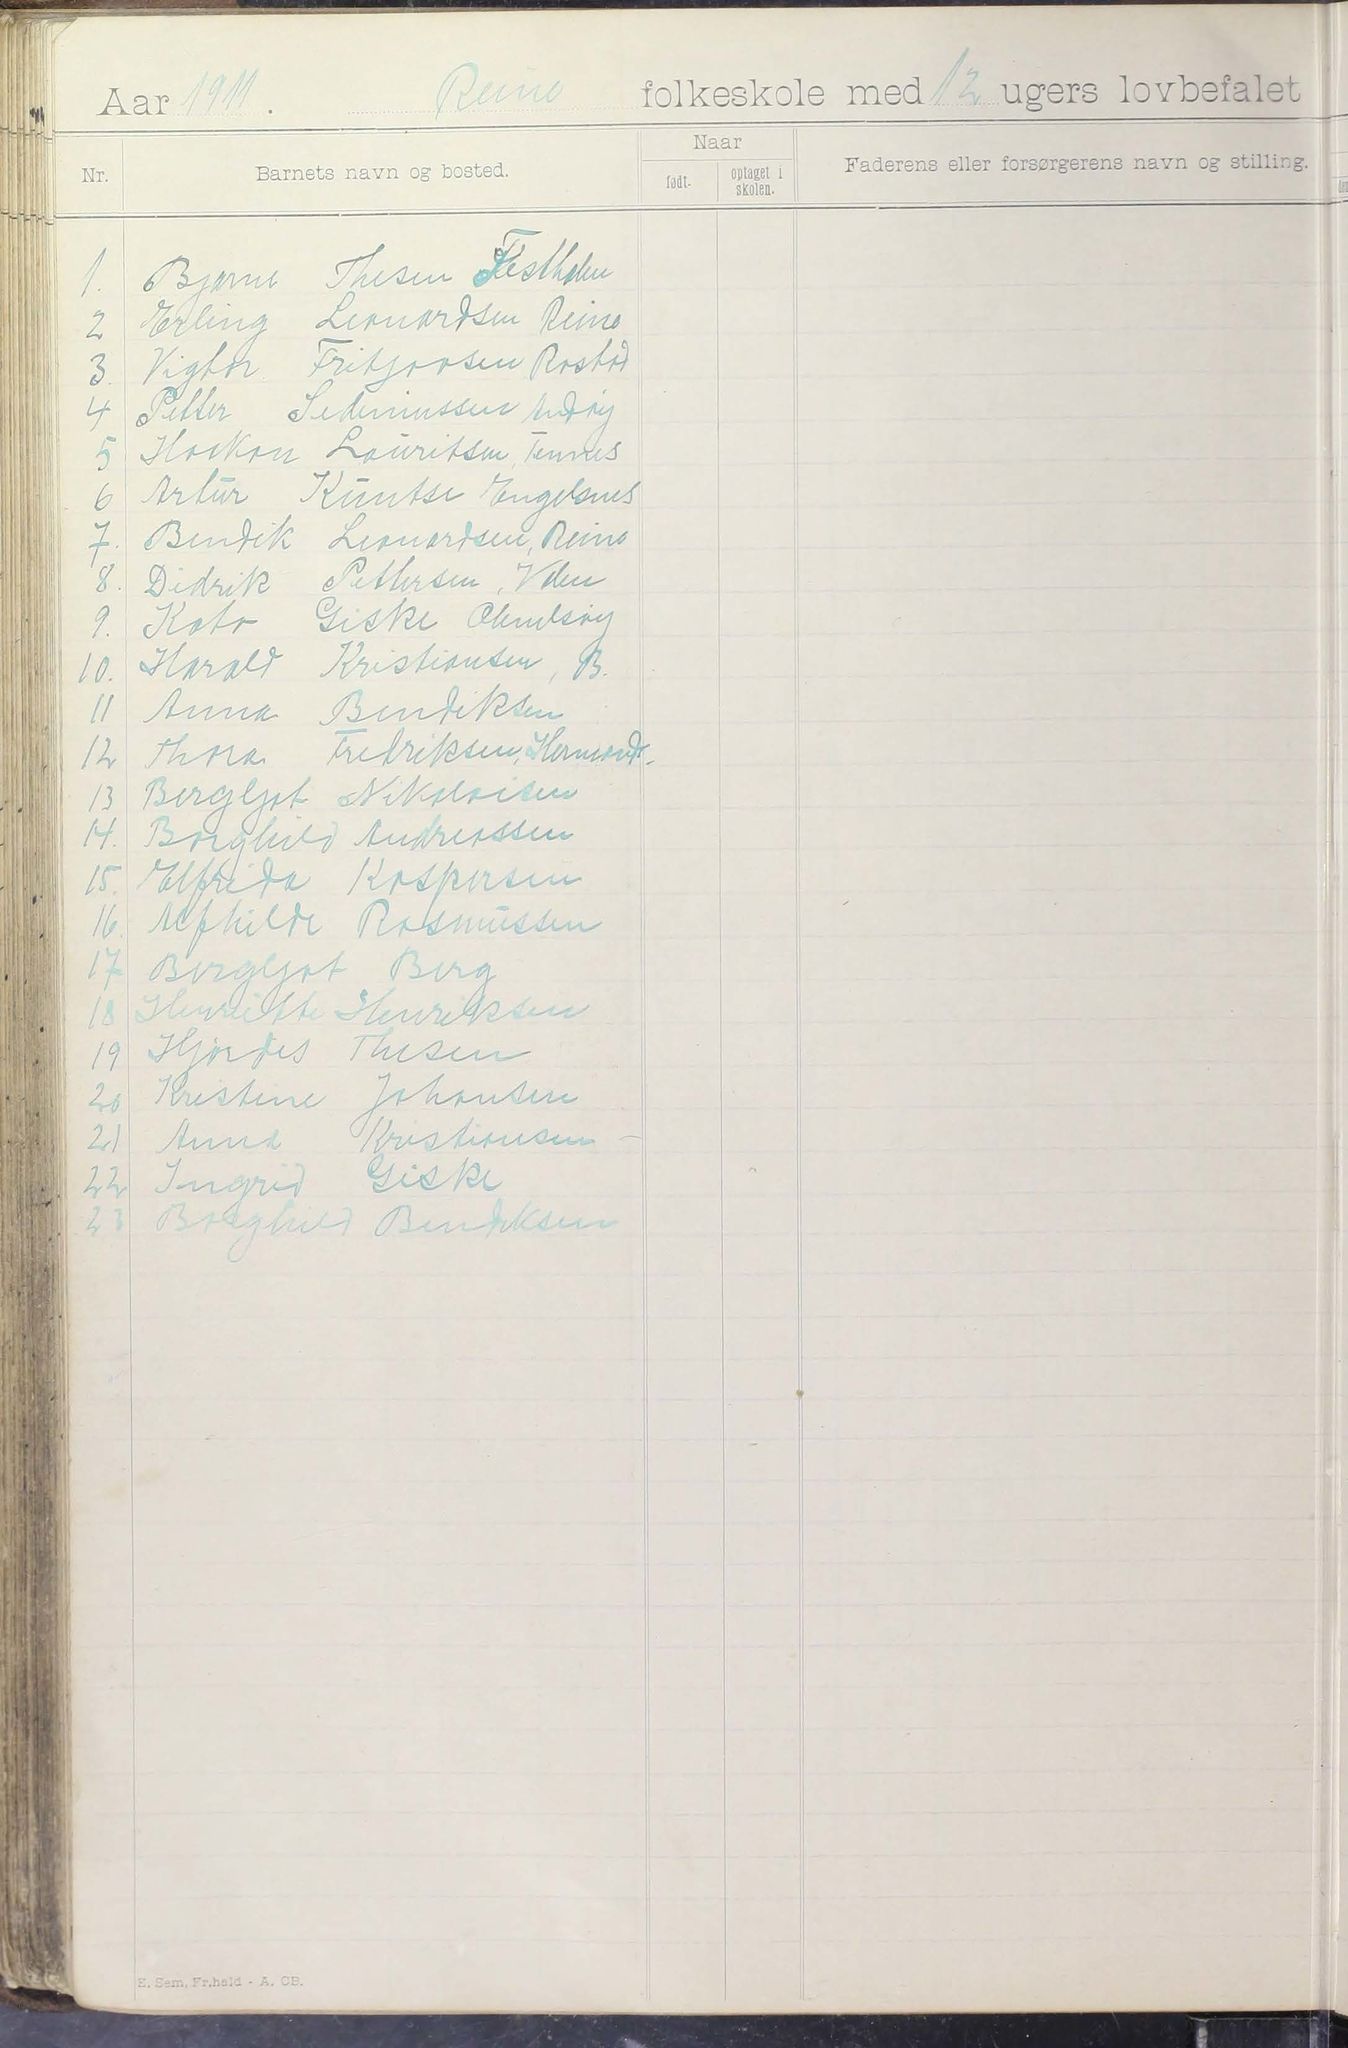 Aar 1911. Reinø folkeskole med 12 ugers lovbefalet
Nr. Barnets navn og bosted. Naar Faderens eller forsørgerens navn og stilling.
født. optaget i skolen.
1. Bjarne Thesen
2 Erling Leonardsen Reinø
3. Vigtor Fritjovsen Rostad
4 Petter Sedeniussen
5 Haakon Lauritsen, Tennes
6 Artur Kuntse Engelsnes
7. Bendik Leonardsen, Reinø
8. Didrik Pettersen,
9. Kato Giske
10. Harald Kristiansen, B.
11 Anna Bendiksen
12 Thora Fredriksen,
13 Bergljot Nikolaisen
14. Borghild Andreassen
15. Elfrida Kaspersen
16. Alfhilde Rasmussen
17 Bergljot Berg
18 Henriette Henriksen
19 Hjørdes Thesen
20 Kristine Johansen
21 Anna Kristiansen –
22 Ingrid Giske
23 Borghild Bendiksen
E. Sem, Fr.hald - A. CB.